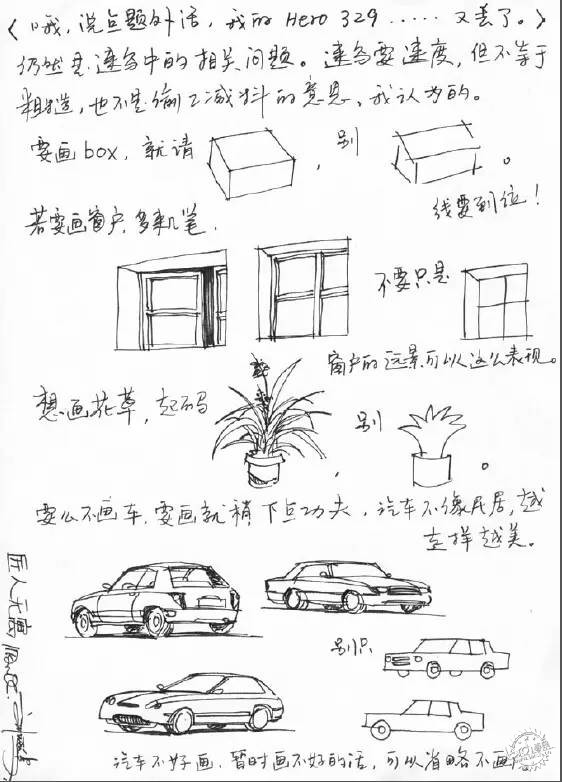 (哦，说点题外话，我的 Hero 329 ...... 又丢了。)
仍然是速写中的相关问题。速写要速度，但不等于
粗糙，也不是偷工减料的意思，我认为的。
要画box，就请 ，别 。
线要到位！
若要画窗户，多来几笔.
不要只是
窗户的远景可以这么表现。
想画花草，起码 ，别 。
要么不画车，要画就稍下点功夫，汽车不像民居，越
走样越美。
别只
汽车不好画，暂时画不好的话，可以省略不画